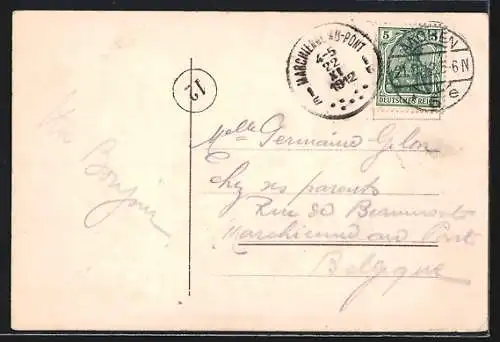 MARCHIENNE-AU-PONT
4-5
22
XI
1912
5
DEUTSCHES REICH
AACHEN
5-6N
e
12
Bonjour
Melle Germaine Gilon
Chez ses parents
Rue de Beaumont
Marchienne au Pont
Belgique